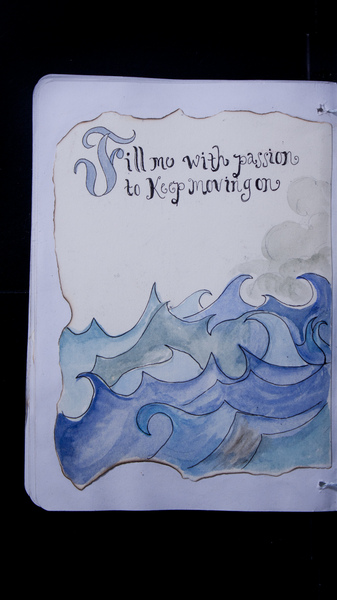 Fill me with passion
to Keep moving on